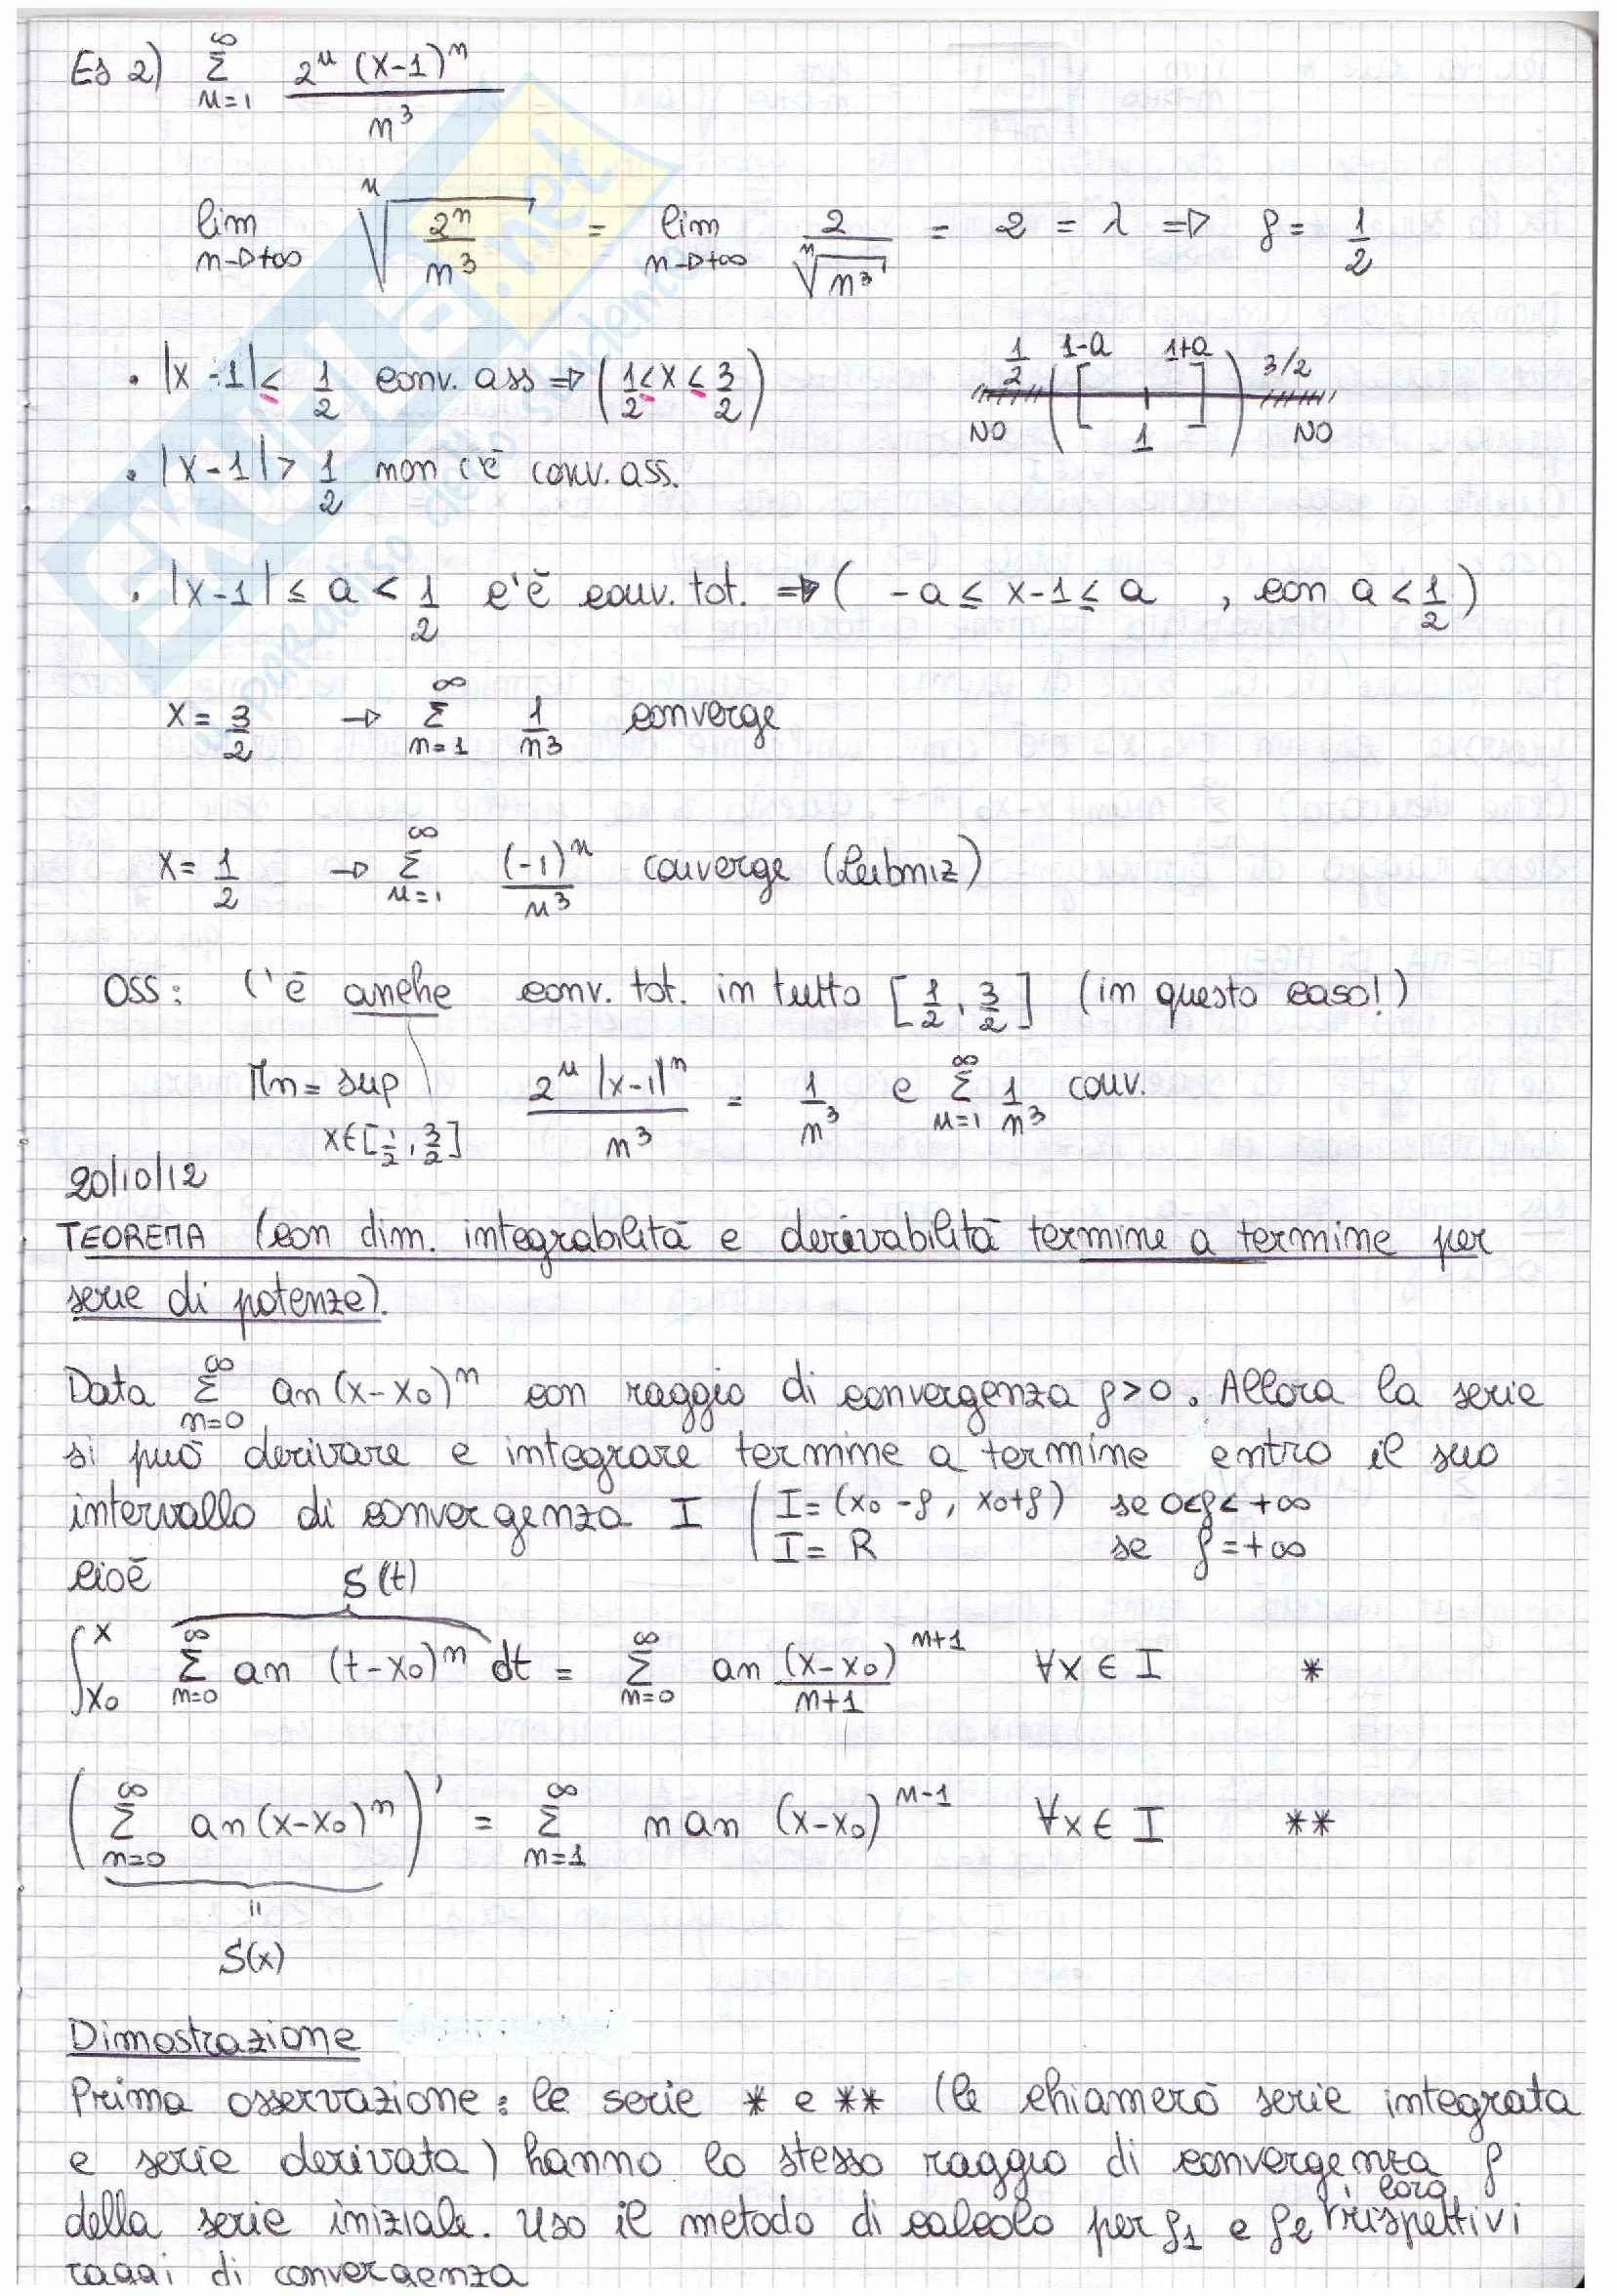 Es 2) ∞ Σ n=1 2^n (x-1)^n / n^3
lim n→+∞ ⁿ√(2^n / n^3) = lim n→+∞ 2 / ⁿ√(n^3) = 2 = λ ⇒ ρ = 1/2
• |x-1| ≤ 1/2 conv. ass ⇒ (1/2 ≤ x ≤ 3/2)
1/2 1-a 1+a 3/2
NO 1 NO
• |x-1| > 1/2 non c'è conv. ass.
• |x-1| ≤ a < 1/2 c'è conv. tot. ⇒ ( -a ≤ x-1 ≤ a , con a < 1/2 )
x = 3/2 → ∞ Σ n=1 1/n^3 converge
x = 1/2 → ∞ Σ n=1 (-1)^n / n^3 converge (Leibniz)
OSS: C'è anche conv. tot. in tutto [1/2, 3/2] (in questo caso!)
Mn = sup x∈[1/2, 3/2] 2^n |x-1|^n / n^3 = 1/n^3 e ∞ Σ n=1 1/n^3 conv.
20/10/12
TEOREMA (con dim. integrabilità e derivabilità termine a termine per
serie di potenze).
Data ∞ Σ n=0 an (x-x0)^n con raggio di convergenza ρ>0. Allora la serie
si può derivare e integrare termine a termine entro il suo
intervallo di convergenza I | I = (x0-ρ, x0+ρ) se 0<ρ<+∞
I = R se ρ=+∞
cioè S(t)
∫ x0 x ∞ Σ n=0 an (t-x0)^n dt = ∞ Σ n=0 an (x-x0)^n+1 / n+1 ∀x ∈ I *
( ∞ Σ n=0 an (x-x0)^n )' = ∞ Σ n=1 n an (x-x0)^n-1 ∀x ∈ I **
=
S(x)
Dimostrazione
Prima osservazione: le serie * e ** (le chiamerò serie integrata
e serie derivata) hanno lo stesso raggio di convergenza ρ
della serie iniziale. Uso il metodo di calcolo per ρ1 e ρ2 loro rispettivi
raggi di convergenza
SKUOLA.net
il paradiso dello studente